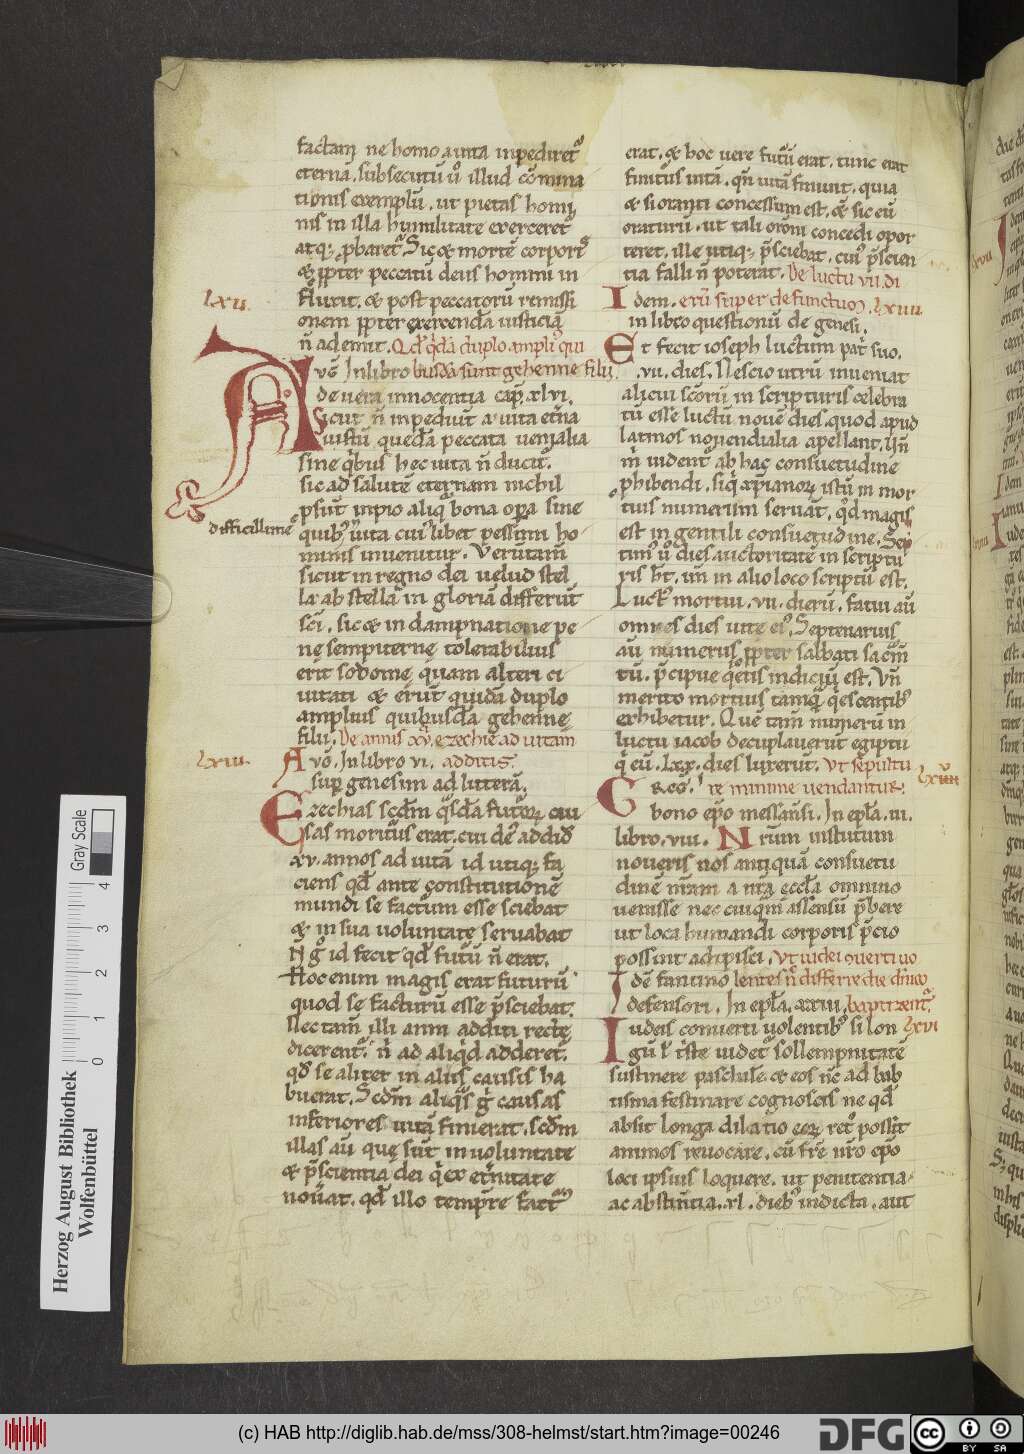 factam ne homo a uita inpediret᷑
eternā. subsecutū u̓o illud cōmina
tionis exemplū. ut pietas homi
nis in illa humilitate exerceret᷑
atq; ꝓbaret᷑. Sic & mortē corporis
& ꝓpter peccatū deus homini in
flixit. & post peccatorū remissi
onem ꝓpter exercendā iusticiā
n̄ ademit. Qd̄ q̇dā duplo ampli᷒ qui
lxii.
Avḡ In libro busdā sunt gehenne filii.
de uera innocentia cap̄. xlvi.
Sicut n̄ inpediūt a uita etn̄a
iustū quedā peccata uenialia
sine q̇bus hec uita n̄ ducit᷑.
sic ad salutē eternam nichil
ꝓsūt inpio aliq̄ bona oꝑa sine
difficillime
quib᷒ uita cui᷒libet pessimi ho
minis inuenitur. Verūtam̄
sicut in regno dei uelud stel
la ab stella in gloriā differūt
sc̄i. sic & in dampnatione pe
nę sempiternę tolerabilius
erit sodomę quam alteri ci
uitati & erūt quidā duplo
amplius quibusdā gehennę
filii. De annis xv. ezechie ad uitam
lxiii.
Avḡ. In libro vi. additis.
suꝑ genesim ad litterā.
Ezechias scd̄m q̇sdā futurꝝ cau
sas moritur᷒ erat. cui de᷒ addid̄
xv. annos ad uitā id utiq; fa
ciens qd̄ ante constitutionē
mundi se factum esse sciebat
& in sua uoluntate seruabat
N̄ g̊ id fecit qd̄ futū n̄ erat.
Hoc enim magis erat futurū
quod se facturū esse p̄sciebat.
Nec tam̄ illi anni additi recte
dicerent᷑. n̄ ad aliq̇d adderet᷑.
qd̄ se aliter in aliis causis ha
buerat. Scd̄m aliq̇s g̊ causas
inferiores uitā finierat. scd̄m
illas au̅ quę sūt in uoluntate
& p̄scientia dei q̇ ex et̄nitate
nouat. qd̄ illo tempr̄e fact᷒
erat. & hoc uere futū erat. tunc erat
finitus uitā. qn̄ uitā finiuit. quia
& si oranti concessum est. & sic eū
oraturū. ut tali or̄oni concedi opor
teret. ille utiq; p̄sciebat. cui᷒ p̄scien
tia falli n̄ poterat. De luctu vii. di
Idem. erū super defunctuos. lxiiii
in libro questionū de genesi.
Et fecit ioseph luctum pat̄ suo.
.vii. dies. Nescio utrū inueniat
alicui sc̄orū in scripturis celebra
tū esse luctū nouē dies. quod apud
latinos nouendialia apellant. Vn̄
m̄ uident᷑ ab hac consuetudine
ꝓhibendi. siq̇ xp̄ianoꝝ istū in mor
tuis numerum seruāt. q̇d magis
est in gentili consuetudine. Sep
tim᷒ u̓o dies auctoritatē in scriptu
ris h̄t. un̄ in alio loco scriptū est.
Luct᷒ mortui. vii. dierū. fatui au̅
omnes dies uite ei᷒. Septenarius
au̅ numerus ꝓpter sabbati sacm̄
tū. p̄cipue q̇etis indiciū est. Vn̄
merito mortuis tamq̄ q̇escentib᷒
exhibetur. Quē tam̄ numerū in
luctu iacob decuplauerūt egiptii
q̇ eū. lxx. dies luxerūt. Vt sepultu
lxv
Greḡ. re minime uendantur.
bono ep̄o messan̄si. In epl̄a. iii.
libro. viii. Nr̄um institutum
noueris nos antiquā consuetu
dinē nr̄am a nr̄a eccl̄a omnino
uetuisse nec cuiq̇m assensū p̄bere
ut loca humandi corporis p̄cio
possint adipisci. Vt iudei ꝯuerti uo
Idē fantino lentes n̄ differre die dn̄ico
defensori. In epl̄a. xxiii. baptizent᷑.
Iudeis conuerti uolentib᷒ si lon lxvi
gū l̓ t̄ste uidet᷑ sollempnitatē
sustinere paschalē. & eos n̄c ad bab
tisma festinare cognoscis ne qd̄
absit longa dilatio eoꝝ ret᷒ possit
animos reuocare. cū fr̄e nr̄o ep̄o
loci ipsius loquere. ut penitentia
ac abstin̄tia. xl. dieb᷒ indicta. aut
Herzog August Bibliothek
Wolfenbüttel
Gray Scale
0 1 2 3 4
(c) HAB http://diglib.hab.de/mss/308-helmst/start.htm?image=00246
DFG
cc
BY SA